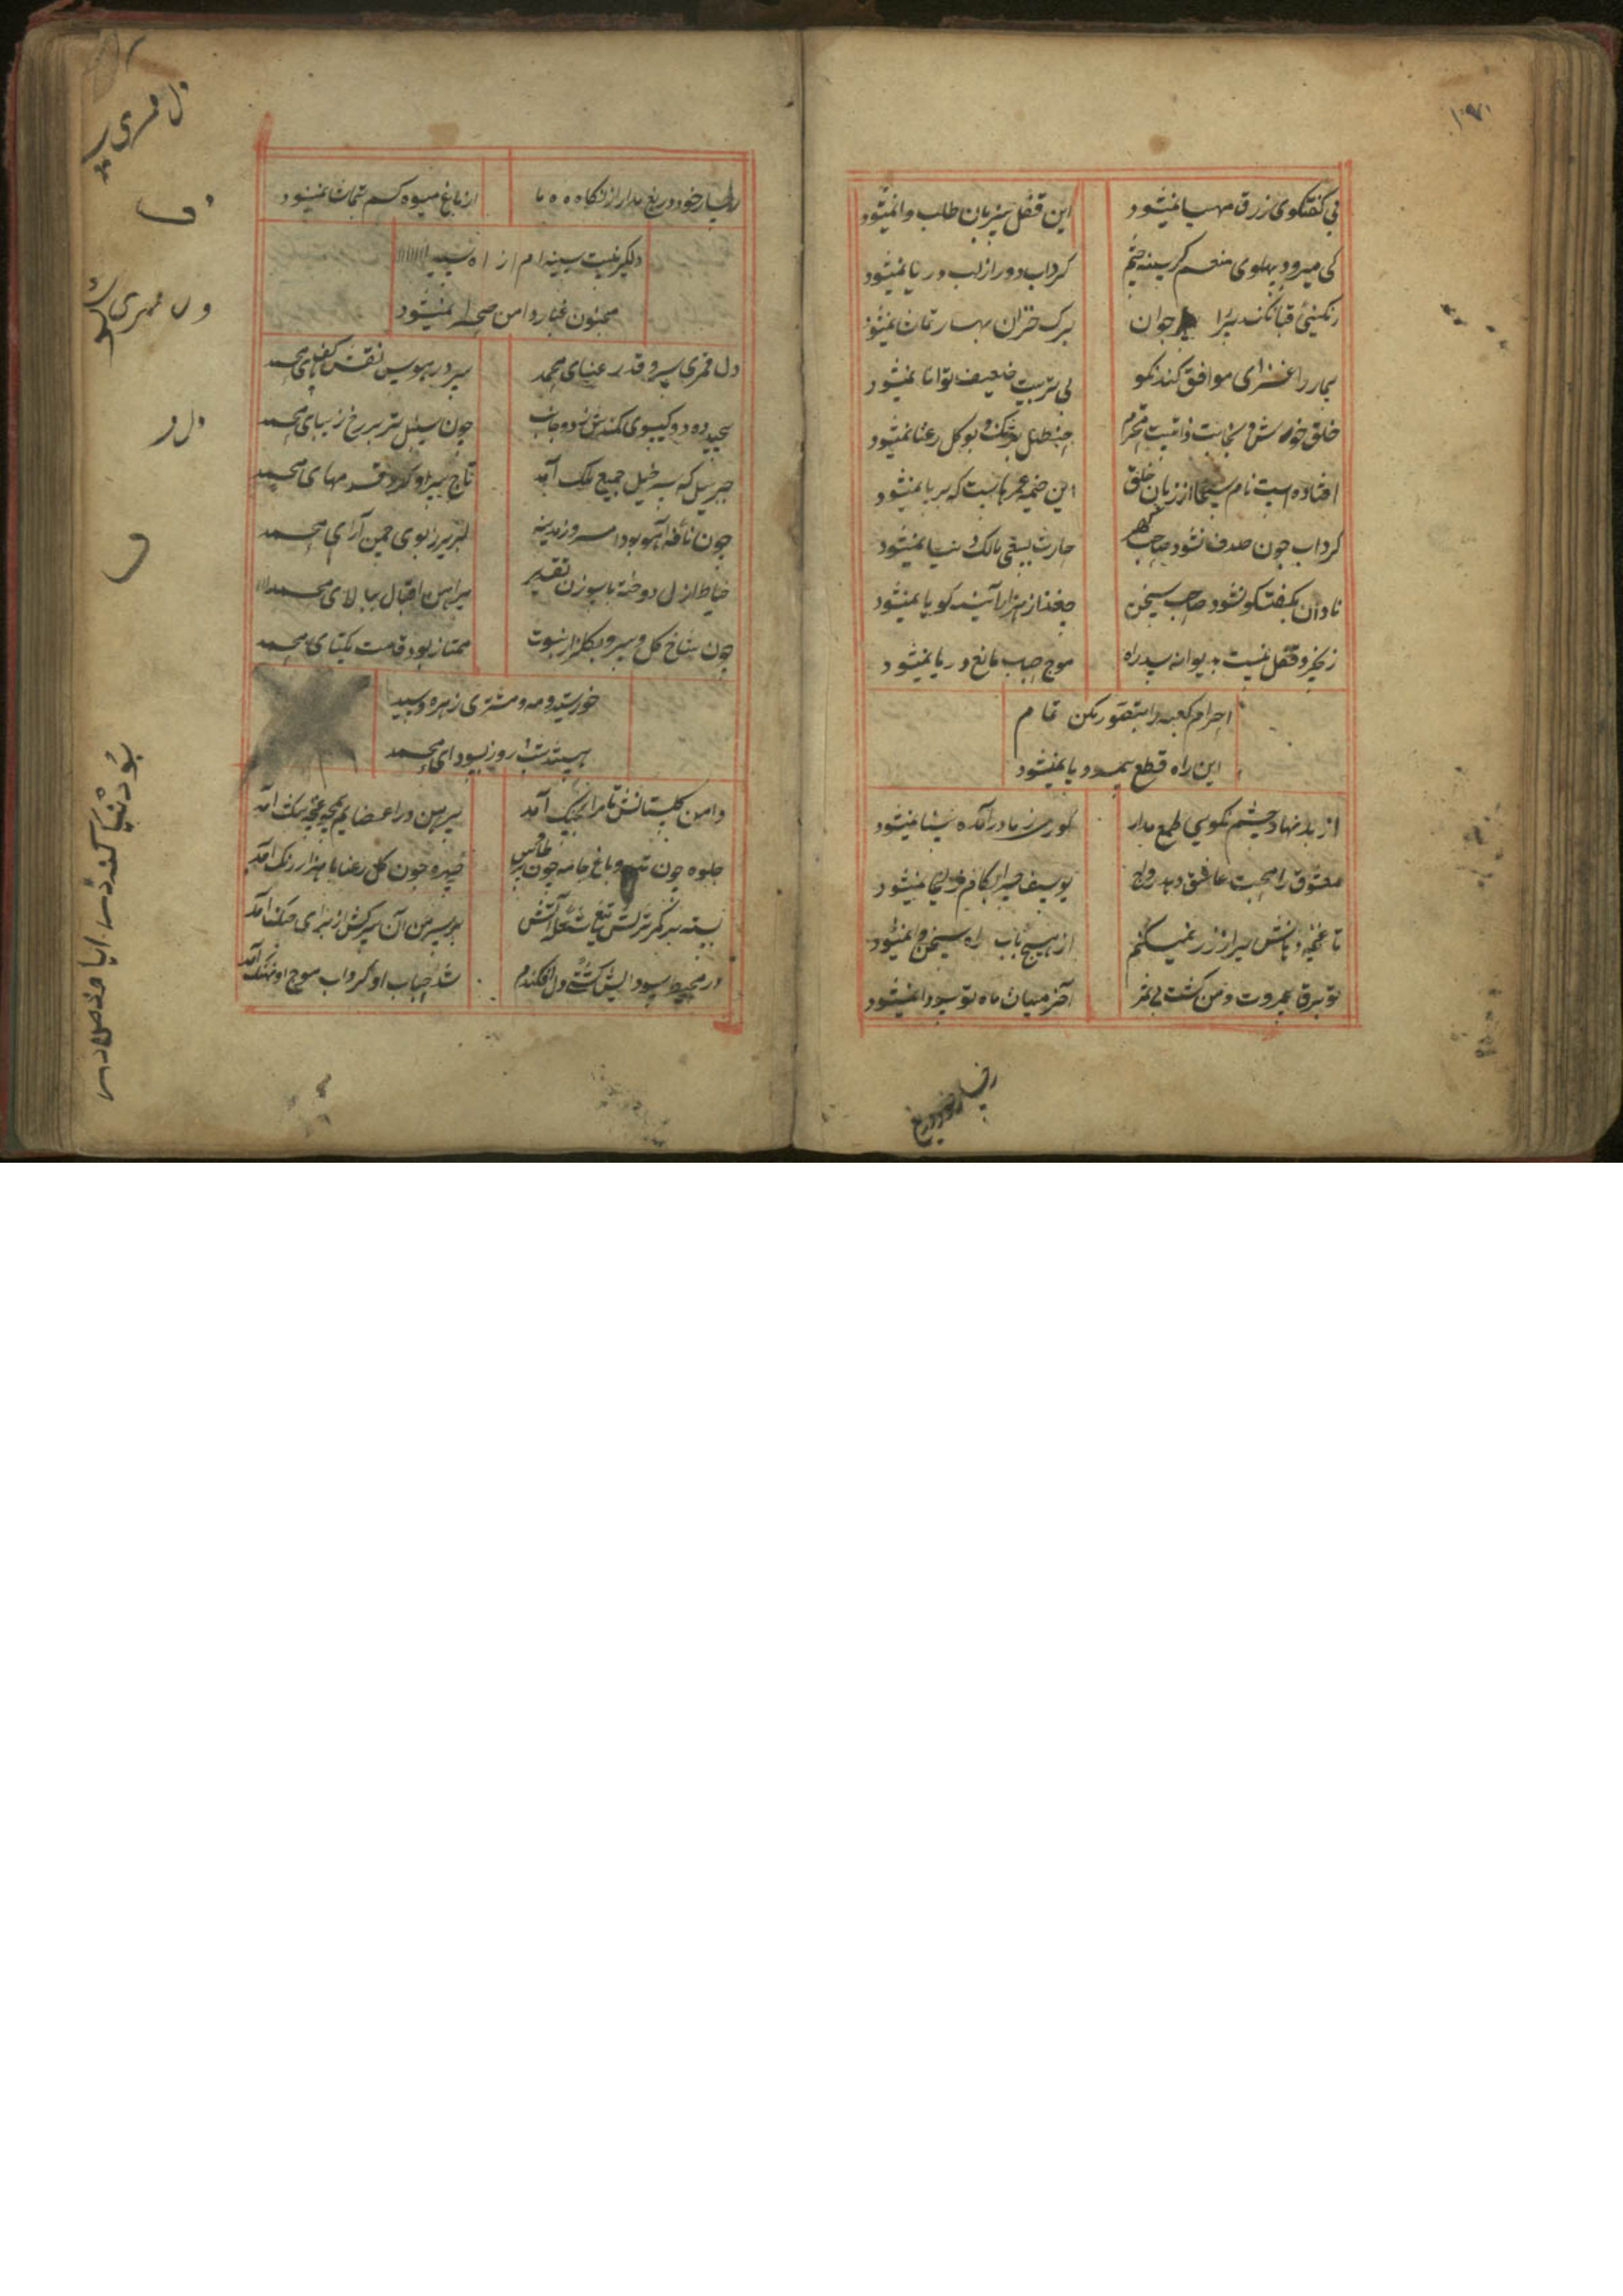 بی گفتگوی رزق مهیا نمیشود این قفل بیزبان طلب وا نمیشود
کی میرود پهلوی منعم گرسنه چشم گرداب دور از لب دریا نمیشود
رنگینی قبا نکند پیر را جوان برگ خزان بهار تماشا نمیشود
بیمار را غذای موافق کند نکو بی تربیت ضعیف توانا نمیشود
خلق خوش و نجابت ذاتیست محترم حنظل برنگ و بو گل رعنا نمیشود
افتاده است نام سیحا از زبان خلق این خیمه عمرهاست که برپا نمیشود
گرداب چون صدف نشود صاحب گهر حارث بسعی مالک دنیا نمیشود
نادان بگفتگو نشود صاحب سخن جغد از هزار آینه گویا نمیشود
زنجیر و قفل نیست بدیوانه سد راه موج حباب مانع دریا نمیشود
احرام کعبه را بتصور مکن تمام
این راه قطع بی مدد پا نمیشود
از بد نهاد چشم نکویی طمع مدار کور ز مادر آمده بینا نمیشود
معشوق را محبت عاشق دهد رواج یوسف چرا بکام زلیخا نمیشود
تا غنچه دهانش پر از زر نمیکنم از هیچ باب راه سخن وا نمیشود
تو برقا بمروت و من کشت بی ثمر آخر میان ما و تو سودا نمیشود
رخسار خود دریغ
رخسار خود دریغ مدار از نگاه ما از باغ میوه کم بتماشا نمیشود
دلگیر نیست سینه ام از آه سید
مجنون غبار دامن صحرا نمیشود
دل قمری سرو قد رعنای محمد سر در هوس نقش کف پای محمد
پیچیده دو گیسوی کمندش ز دو جانب چون سنبل تر بر رخ زیبای محمد
جبریل که سر خیل جمیع ملک آمد تاج سر او گرد قدمهای محمد
چون نافه آهو بود امروز مدینه لبریز ز بوی چمن آرای محمد
خیاط ازل دوخته با سوزن تقدیر پیراهن اقبال ببالای محمد
چون شاخ گل و سرو بگلزار نبوت ممتاز بود قامت یکتای محمد
خورشید و مه و مشتری زهره و سید
هستند شب و روز بسودای محمد
دامن گلستانش تا مرا بچنگ آمد پیرهن در اعضایم همچو غنچه تنگ آمد
جلوه چون باغ جامه چون پر طاوس چهره چون گل رعنا با هزار رنگ آمد
بسته بر کمر ترکش تیغ شعله آتش بر سر من آن سرکش از برای جنگ آمد
در محیط سودایش کشتی دل افکندم شد حباب او گرداب موج او نهنگ آمد